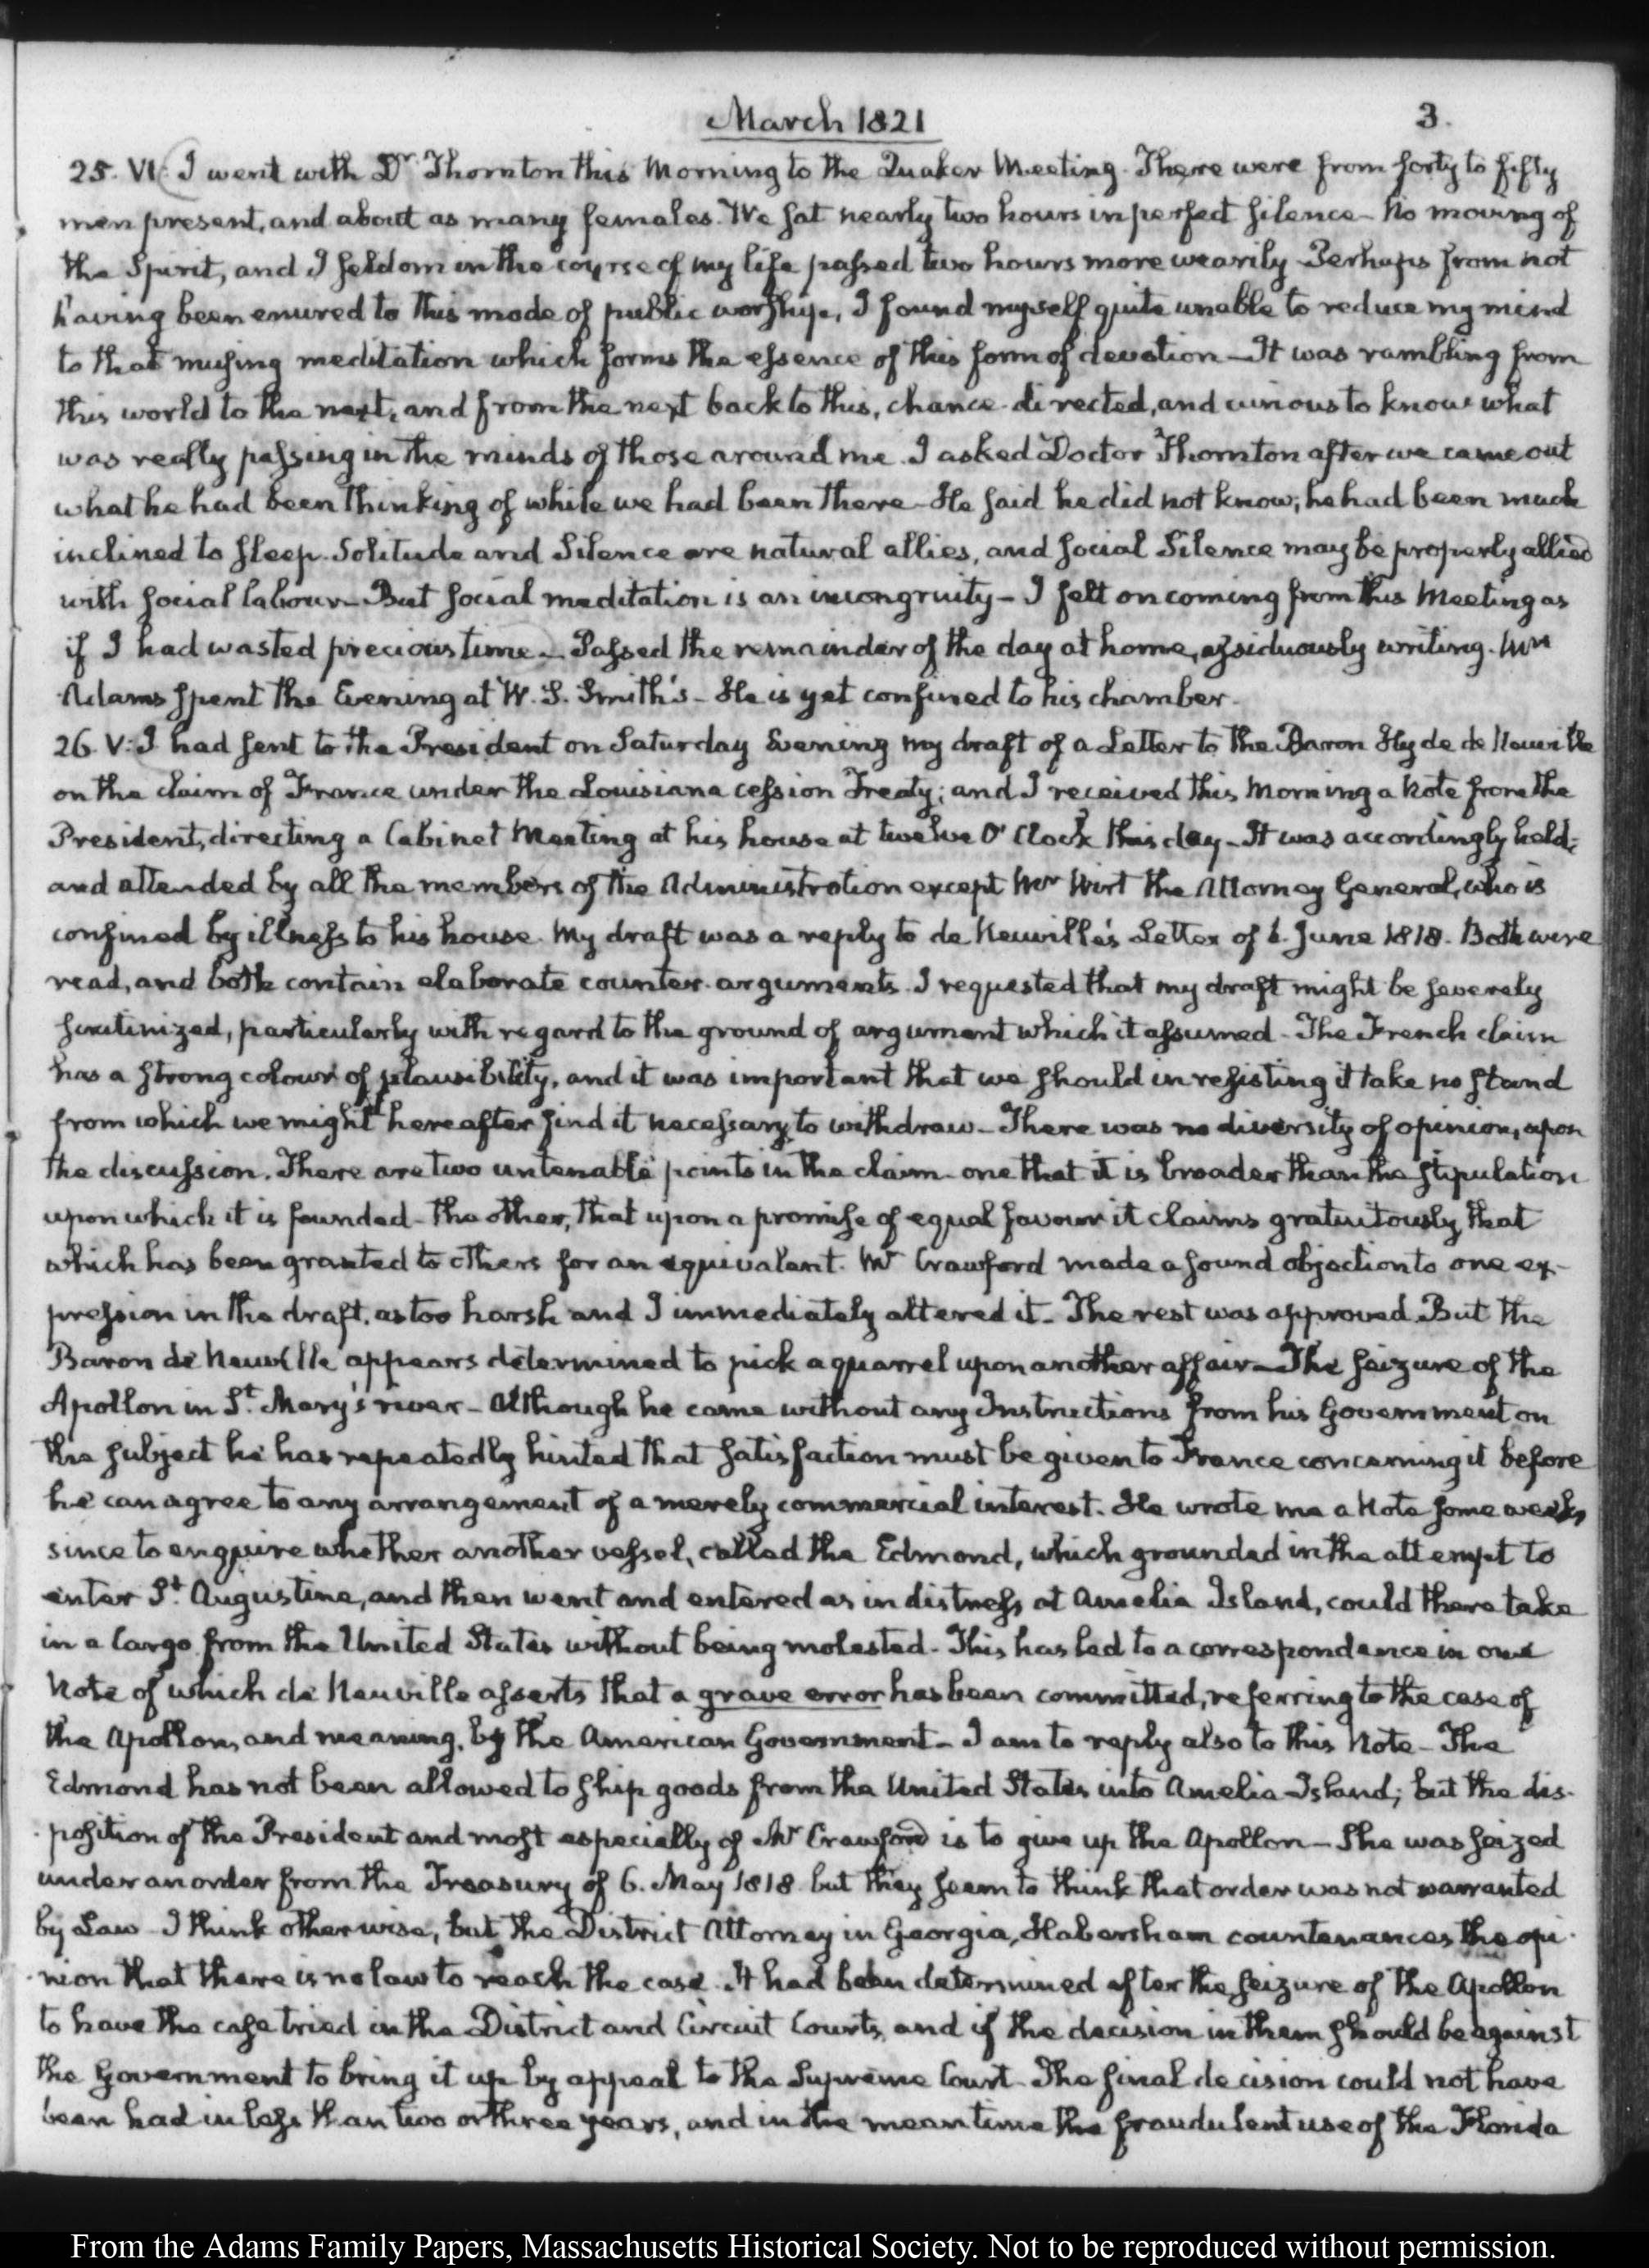 March 1821
3.
25. VI: I went with Dr. Thornton this Morning to the Quaker Meeting. There were from forty to fifty
men present, and about as many females. We sat nearly two hours in perfect silence - No moving of
the Spirit, and I seldom in the course of my life passed two hours more wearily - Perhaps from not
having been enured to this mode of public worship, I found myself quite unable to reduce my mind
to that musing meditation which forms the essence of this form of devotion - It was rambling from
this world to the next, and from the next back to this, chance-directed, and curious to know what
was really passing in the minds of those around me. I asked Doctor Thornton after we came out
what he had been thinking of while we had been there - He said he did not know; he had been much
inclined to sleep. Solitude and Silence are natural allies, and social Silence may be properly allied
with social labour - But social meditation is an incongruity - I felt on coming from this Meeting as
if I had wasted precious time - Passed the remainder of the day at home, assiduously writing. Mrs
Adams spent the Evening at W. S. Smith's - He is yet confined to his chamber.
26. V: I had sent to the President on Saturday Evening my draft of a Letter to the Baron Hyde de Neuville
on the claim of France under the Louisiana cession Treaty; and I received this Morning a Note from the
President, directing a Cabinet Meeting at his house at twelve O'Clock this day - It was accordingly held;
and attended by all the members of the Administration except Mr Wirt the Attorney General, who is
confined by illness to his house. My draft was a reply to de Neuville's Letter of June 1818. Both were
read, and both contain elaborate counter-arguments. I requested that my draft might be severely
scrutinized, particularly with regard to the ground of argument which it assumed - The French claim
has a strong colour of plausibility, and it was important that we should in resisting it take no stand
from which we might hereafter find it necessary to withdraw - There was no diversity of opinion, upon
the discussion. There are two untenable points in the claim - one that it is broader than the stipulation
upon which it is founded - the other, that upon a promise of equal favour it claims gratuitously, that
which has been granted to others for an equivalent. Mr Crawford made a sound objection to one ex-
pression in the draft, as too harsh and I immediately altered it - The rest was approved. But the
Baron de Neuville appears determined to pick a quarrel upon another affair - The seizure of the
Apollon in St. Mary's river - Although he came without any Instructions from his Government on
the subject he has repeatedly hinted that satisfaction must be given to France concerning it before
he can agree to any arrangement of a merely commercial interest. He wrote me a Note some weeks
since to enquire whether another vessel, called the Edmond, which grounded in the attempt to
enter St. Augustine, and then went and entered as in distress at Amelia Island, could there take
in a Cargo from the United States without being molested - This has led to a correspondence in one
Note of which de Neuville asserts that a grave error has been committed, referring to the case of
the Apollon, and meaning, by the American Government - I am to reply also to this Note - The
Edmond has not been allowed to ship goods from the United States into Amelia Island; but the dis-
position of the President and most especially of Mr Crawford is to give up the Apollon - She was seized
under an order from the Treasury of 6. May 1818 but they seem to think that order was not warranted
by Law - I think otherwise, but the District Attorney in Georgia, Habersham countenances the opi-
nion that there is no law to reach the case. It had been determined after the seizure of the Apollon
to have the case tried in the District and Circuit Courts, and if the decision in them should be against
the Government to bring it up by appeal to the Supreme Court - The final decision could not have
been had in less than two or three years, and in the mean time the fraudulent use of the Florida
From the Adams Family Papers, Massachusetts Historical Society. Not to be reproduced without permission.